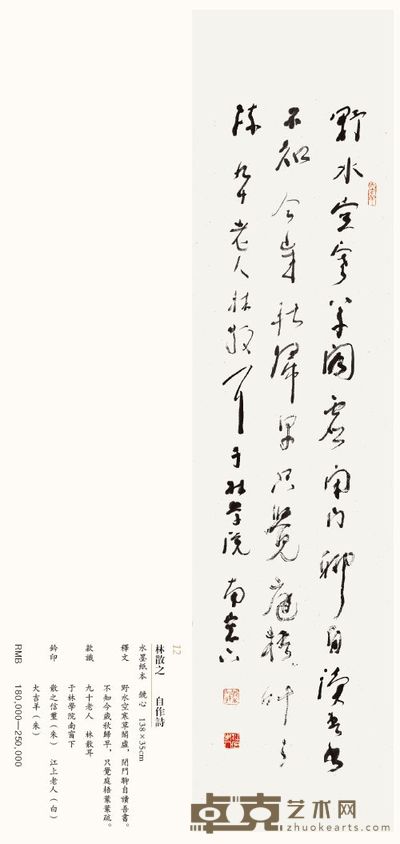 野水空寒草閣虛閉門聊自讀吾書
不知今歲秋歸早只覺庭梧葉葉
疎 九十老人林散耳于林學院南窗下
12
林散之 自作詩
水墨紙本 鏡心 138×35cm
釋文 野水空寒草閣虛，閉門聊自讀吾書。
不知今歲秋歸早，只覺庭梧葉葉疏。
款識 九十老人 林散耳
于林學院南窗下
鈐印 散之信璽（朱） 江上老人（白）
大吉羊（朱）
RMB 180,000—250,000
卓克艺术网
zhuokearts.com